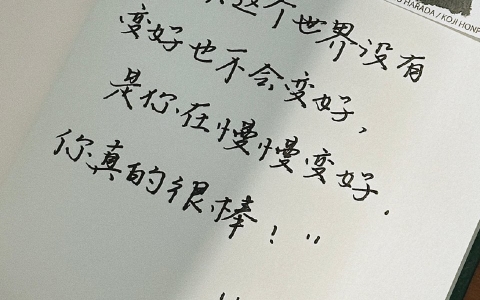 HARADA / KOJI HONP
这个世界没有
变好也不会变好,
是你在慢慢变好.
你真的很棒!"